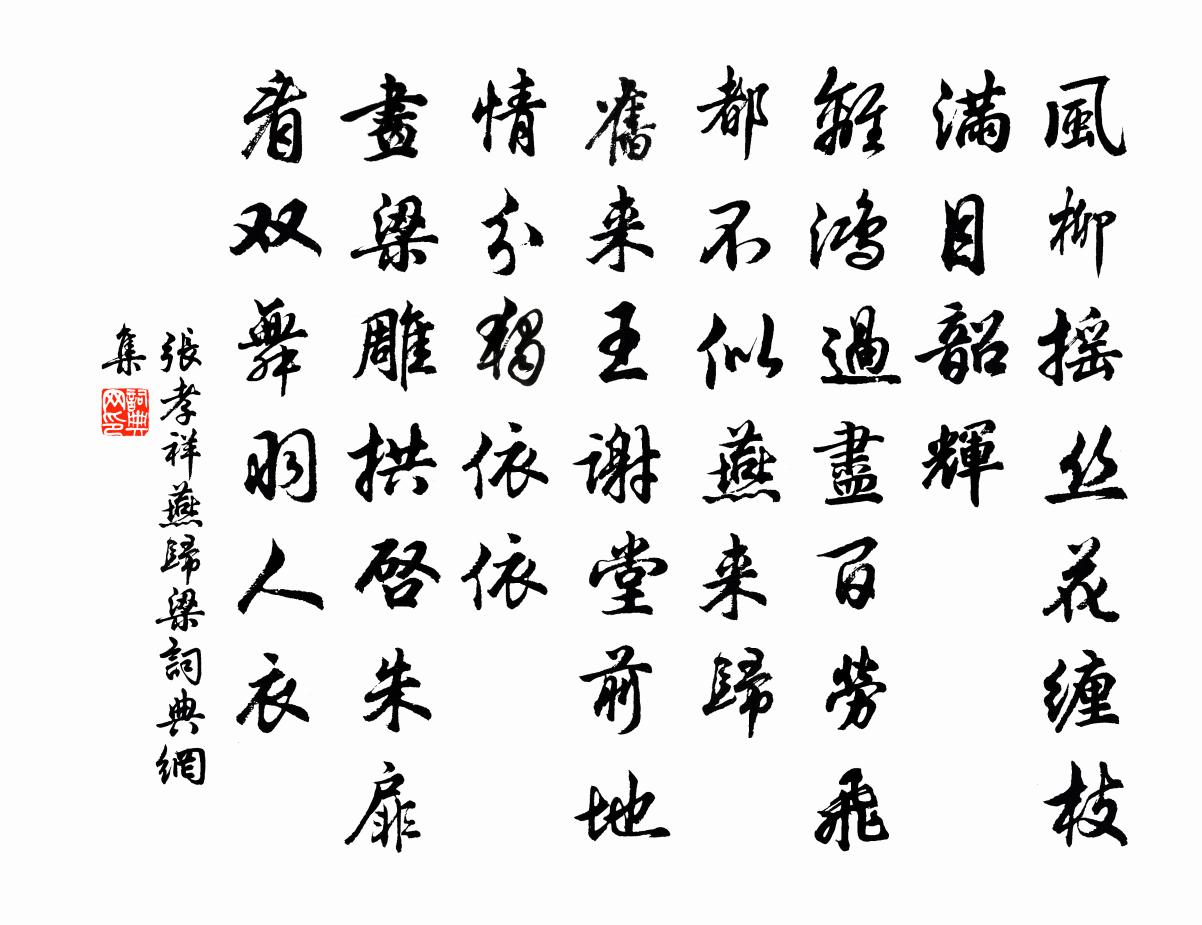 風柳摇丝花缠枝
滿目韶輝
離鴻過盡百勞飛
都不似燕来歸
舊来王謝堂前地
情分獨依依
畫梁雕拱啓朱扉
看双舞羽人衣
張孝祥燕歸梁詞典網
集
詞典网印